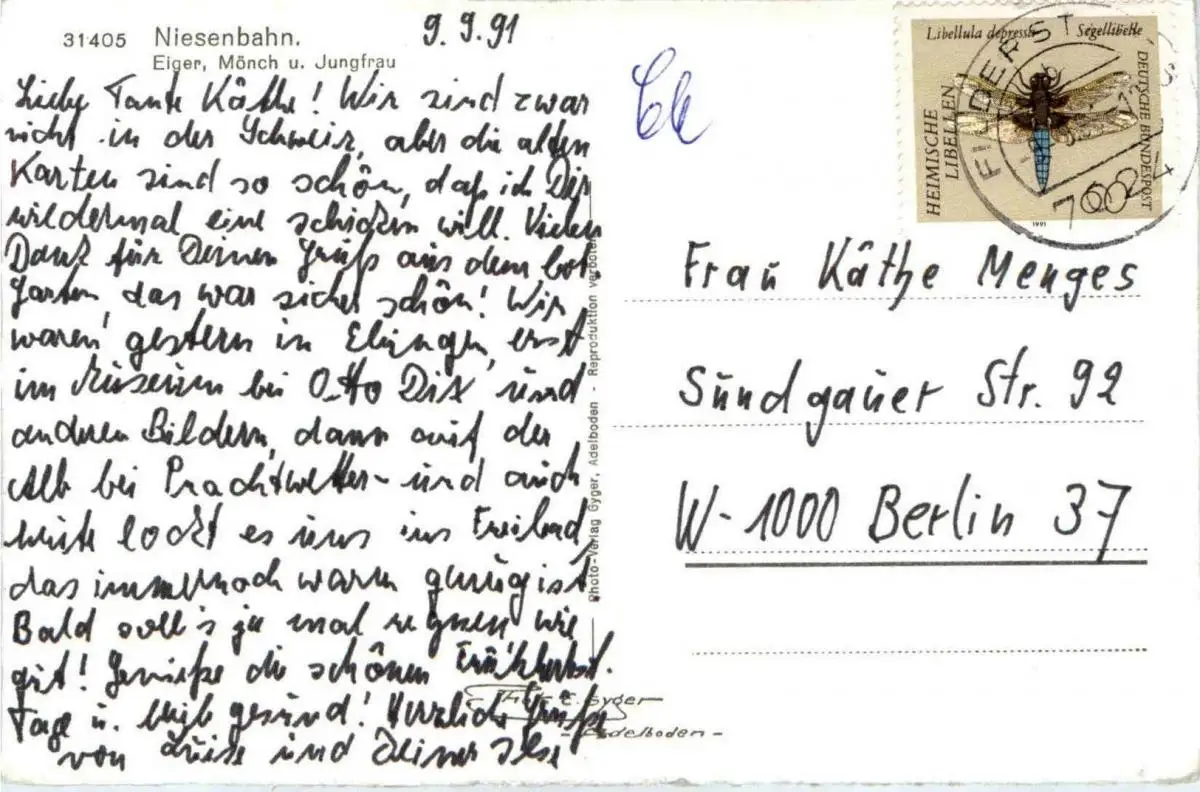 31405 Niesenbahn.
Eiger, Mönch u. Jungfrau
9.9.91
Liebe Tante Käthe! Wir sind zwar
nicht in der Schweiz, aber die alten
Karten sind so schön, daß ich Dir
wiedermal eine schicken will. Vielen
Dank für Deinen Gruß aus dem bot.
Garten, das war sicher schön! Wir
waren gestern in erst
im Museum bei Otto Dix und
anderen Bildern, dann auf der
Alb bei Prachtwetter - und auch
heute lockt es uns ins Freibad,
das immernoch warm genug ist.
Bald soll's ja mal regnen wie
gut! Genieße die schönen Frühherbst.
Tage u. bleib gesund! Herzliche Grüße
von Luise und Deiner Ilse
Photo-Verlag Gyger, Adelboden - Reproduktion verboten
Phot. E. Gyger
- Adelboden -
Libellula depressa Segellibelle
HEIMISCHE
LIBELLEN
DEUTSCHE BUNDESPOST
1991
FILDERST
7024
Frau Käthe Menges
Sundgauer Str. 92
W-1000 Berlin 37